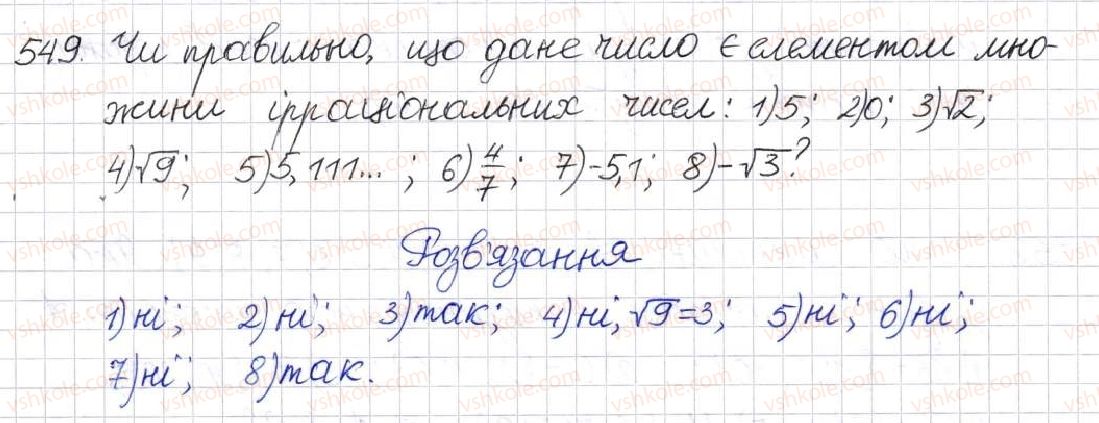 549. Чи правильно, що дане число є елементом мно-
жини ірраціональних чисел: 1) 5; 2) 0; 3) √2;
4) √9; 5) 5,111...; 6) 4/7; 7) -5,1; 8) -√3?
Розв'язання
1) ні; 2) ні; 3) так; 4) ні, √9=3; 5) ні; 6) ні;
7) ні; 8) так.